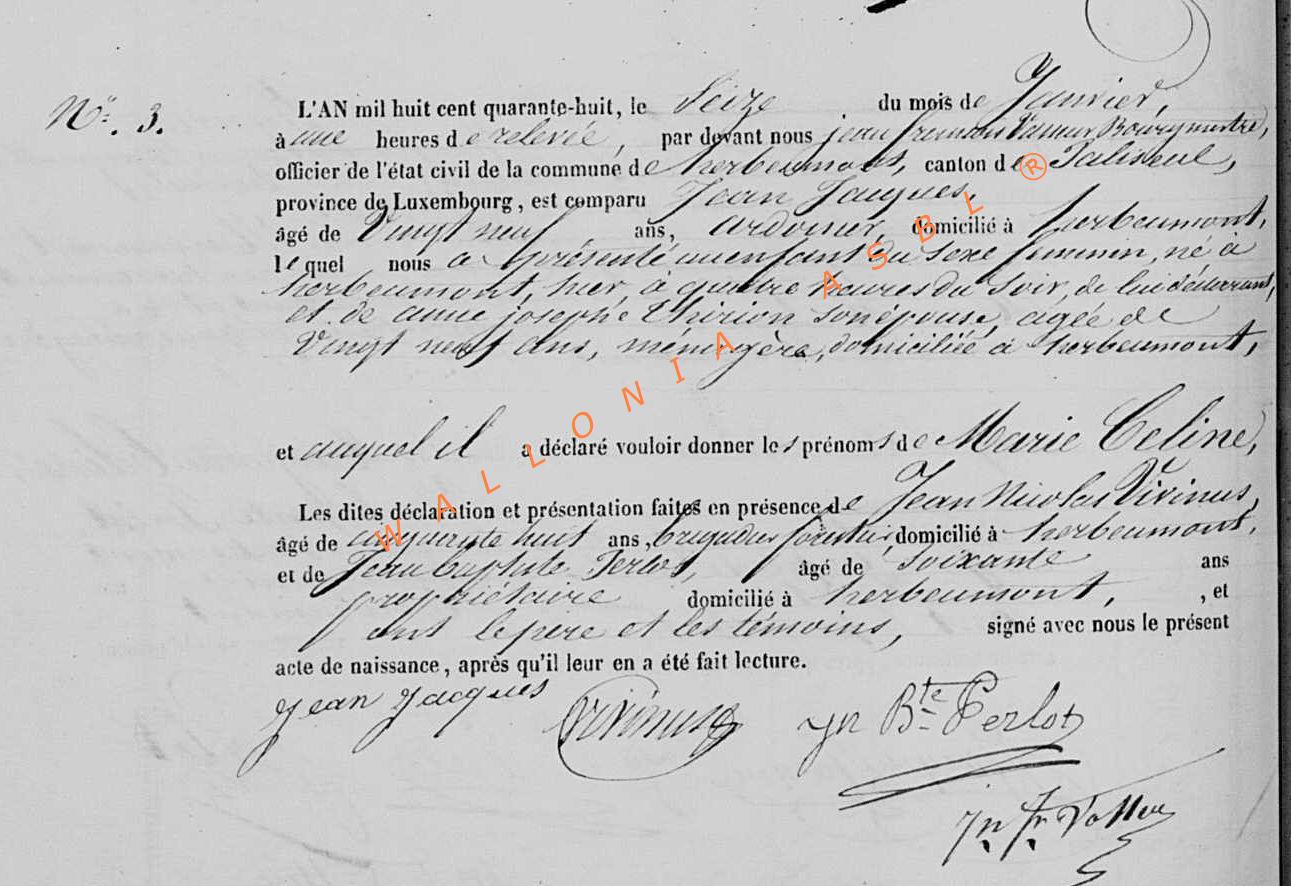 N° 3.
L'AN mil huit cent quarante-huit, le Seize du mois de Janvier,
à une heures de relevée, par devant nous jean Bourgmestre,
officier de l'état civil de la commune de herbeumont, canton de Paliseul,
province de Luxembourg, est comparu Jean Jacques,
âgé de Vingt neuf ans, ardoisier, domicilié à herbeumont,
lequel nous a présenté un enfant du sexe féminin, né à
herbeumont, hier, à quatre heures du soir, de lui déclarant,
et de anne josephe Thirion son épouse, agée de
Vingt neuf ans, ménagère, domiciliée à herbeumont,
et auquel il a déclaré vouloir donner les prénoms de Marie Celine,
Les dites déclaration et présentation faites en présence de Jean Nicolas Virinus,
âgé de cinquante huit ans, brigadier forestier, domicilié à herbeumont,
et de Jean baptiste Perlot, âgé de soixante ans
propriétaire domicilié à herbeumont, , et
ont le pere et les témoins, signé avec nous le présent
acte de naissance, après qu'il leur en a été fait lecture.
jean jacques Virinus jn Bte Perlot
Jn fr
WALLONIA ASBL ®